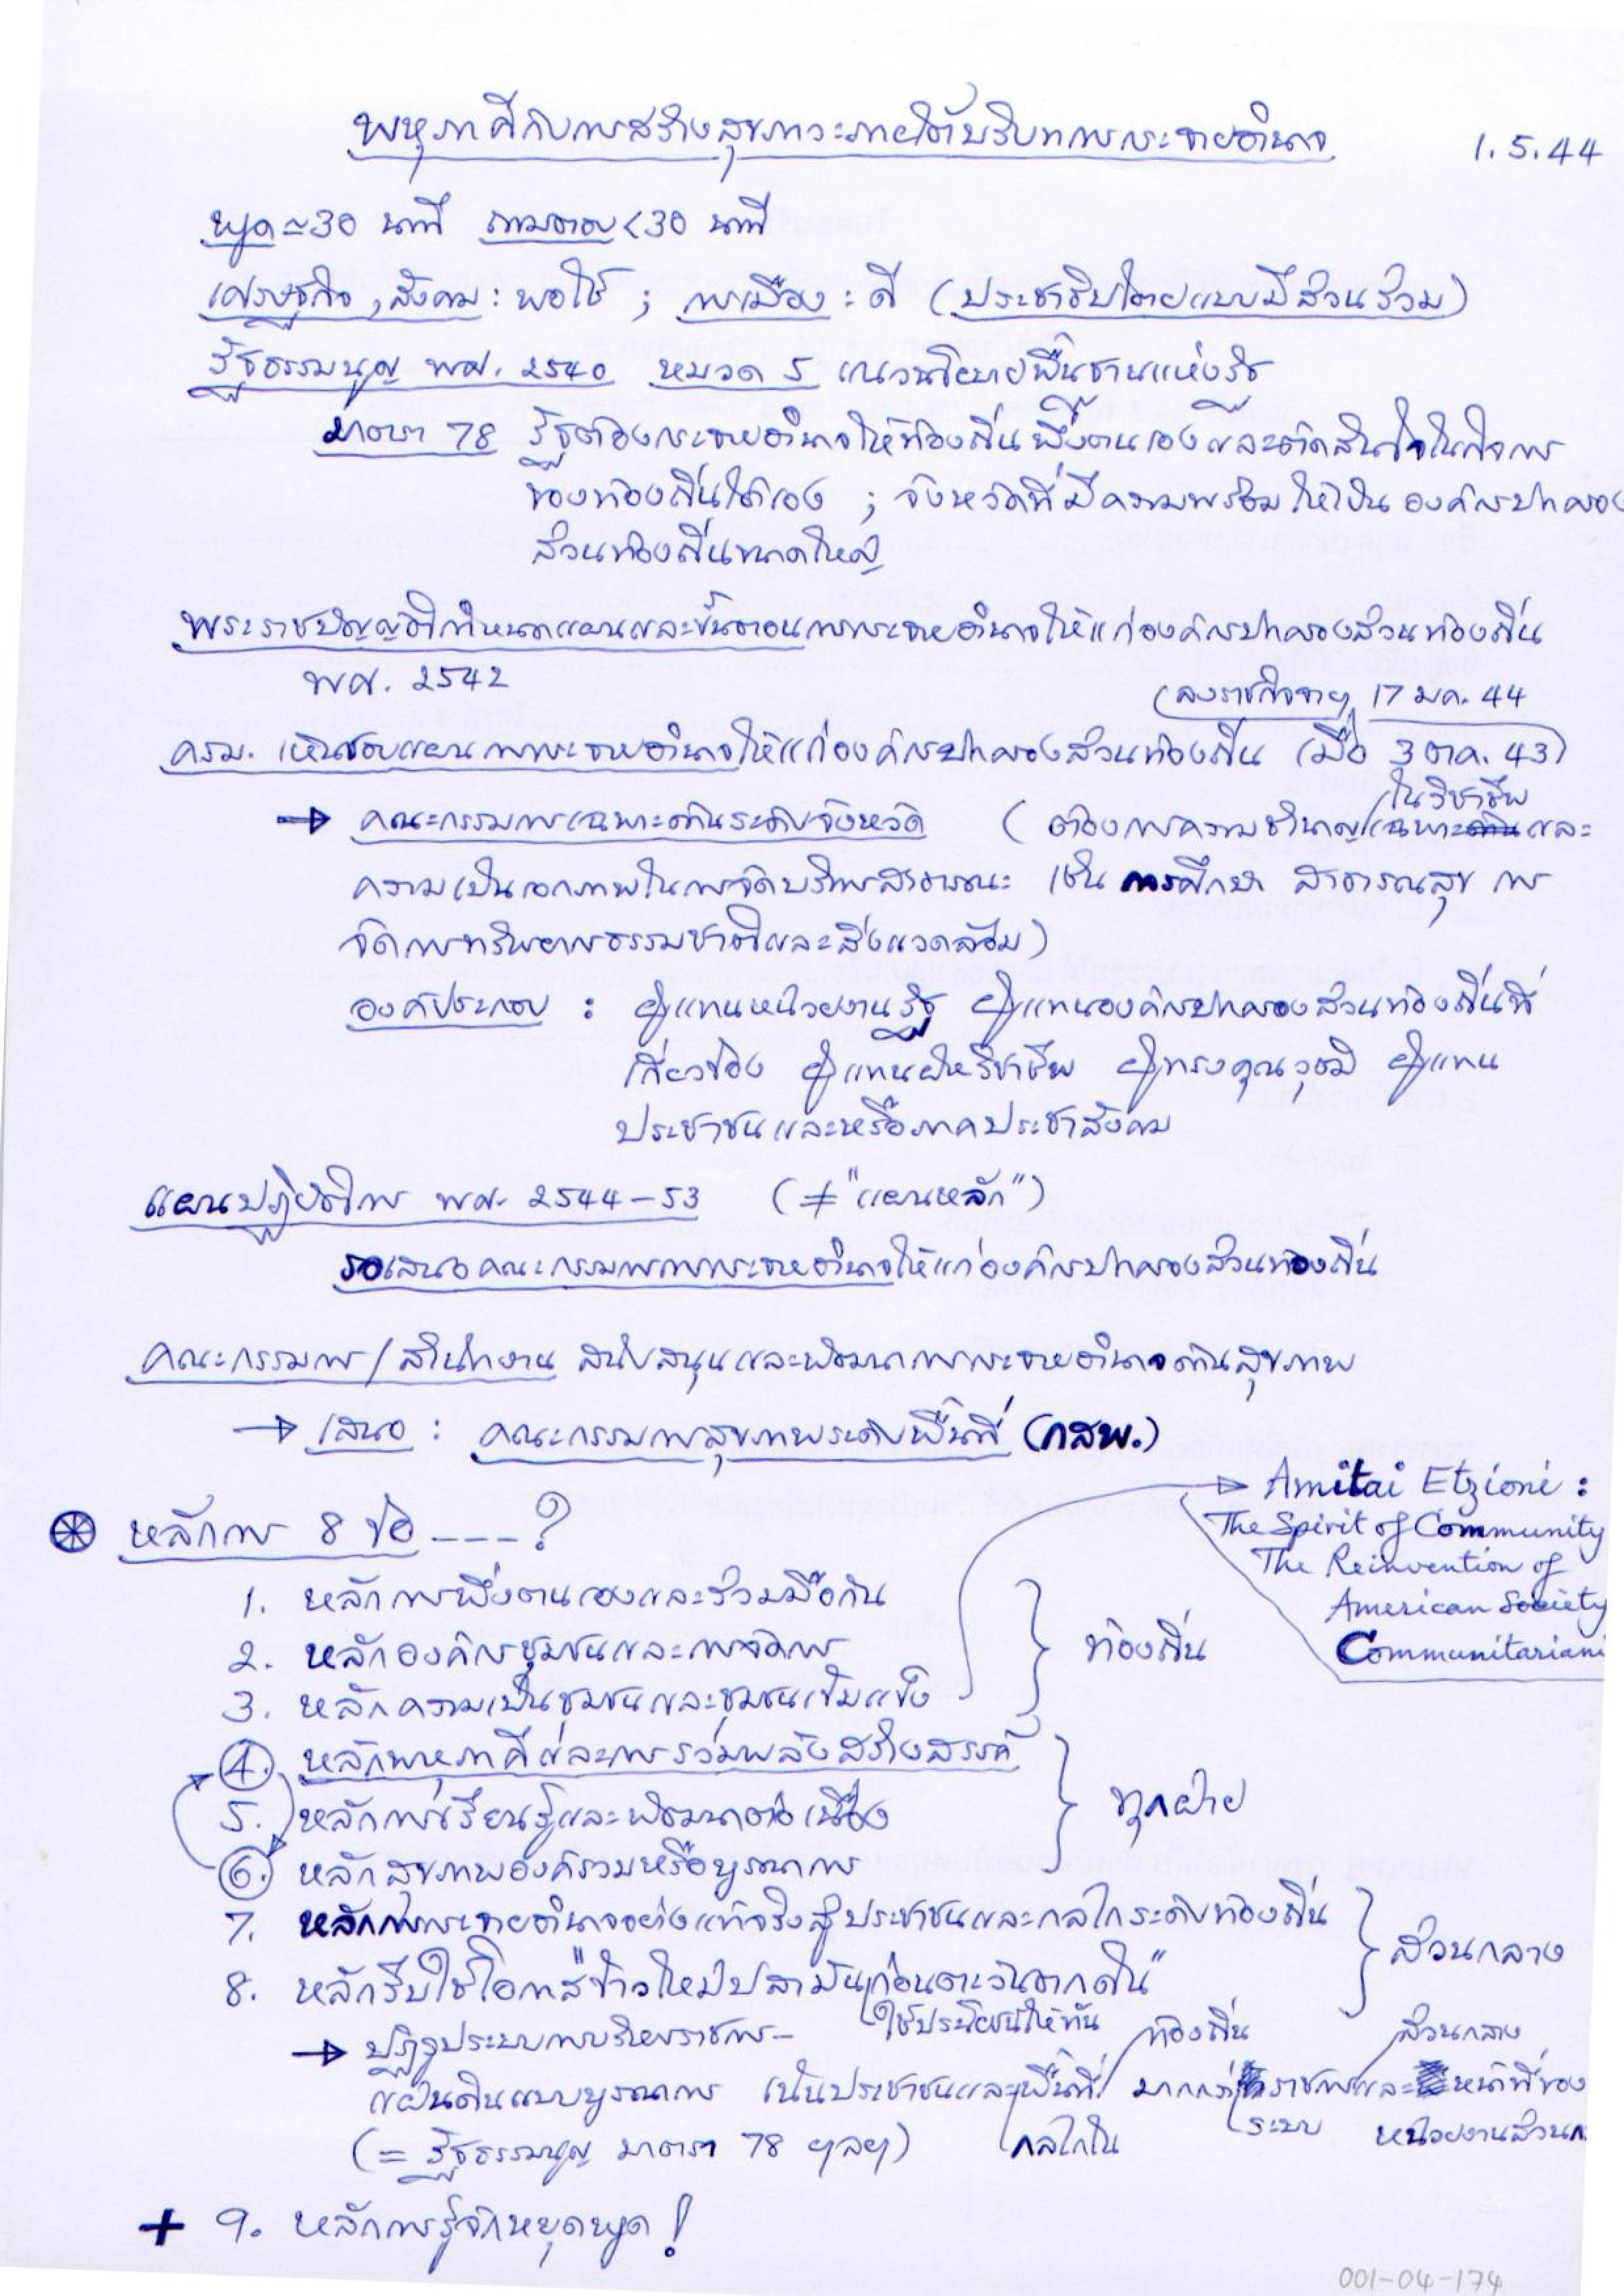 พหุภาคีกับการสร้างสุขภาวะภายใต้บริบทการกระจายอำนาจ
1.5.44
พูด ≃ 30 นาที ถามตอบ < 30 นาที
เศรษฐกิจ, สังคม : พอใช้ ; การเมือง : ดี (ประชาธิปไตยแบบมีส่วนร่วม)
รัฐธรรมนูญ พศ. 2540 หมวด 5 แนวนโยบายพื้นฐานแห่งรัฐ
มาตรา 78 รัฐต้องกระจายอำนาจให้ท้องถิ่นพึ่งตนเองและตัดสินใจในกิจการ
ของท้องถิ่นได้เอง ; จังหวัดที่มีความพร้อมให้เป็น องค์กรปกครอง
ส่วนท้องถิ่นขนาดใหญ่
พระราชบัญญัติกำหนดแผนและขั้นตอนการกระจายอำนาจให้แก่องค์กรปกครองส่วนท้องถิ่น
พศ. 2542
(ลงราชกิจจาฯ 17 มค. 44
ครม. เห็นชอบแผนการกระจายอำนาจให้แก่องค์กรปกครองส่วนท้องถิ่น (เมื่อ 3 ตค. 43)
→ คณะกรรมการเฉพาะด้านระดับจังหวัด (ต้องการความชำนาญในวิชาชีพเฉพาะและ
ความเป็นเอกภาพในการจัดบริการสาธารณะ เช่น การศึกษา สาธารณสุข การ
จัดการทรัพยากรธรรมชาติและสิ่งแวดล้อม)
องค์ประกอบ : ผู้แทนหน่วยงานรัฐ ผู้แทนองค์กรปกครองส่วนท้องถิ่นที่
เกี่ยวข้อง ผู้แทนฝ่ายวิชาชีพ ผู้ทรงคุณวุฒิ ผู้แทน
ประชาชนและหรือภาคประชาสังคม
แผนปฏิบัติการ พศ. 2544-53 (≠ "แผนหลัก")
รอเสนอคณะกรรมการการกระจายอำนาจให้แก่องค์กรปกครองส่วนท้องถิ่น
คณะกรรมการ/สำนักงาน สนับสนุนและพัฒนาการกระจายอำนาจด้านสุขภาพ
→ เสนอ : คณะกรรมการสุขภาพระดับพื้นที่ (กสพ.)
→ Amitai Etzioni :
The Spirit of Community
The Reinvention of
American Society
Communitariani
หลักการ 8 ข้อ ----?
1. หลักการพึ่งตนเองและร่วมมือกัน
2. หลักองค์กรชุมชนและการจัดการ
3. หลักความเป็นชุมชนและชุมชนเข้มแข็ง
ท้องถิ่น
4. หลักพหุภาคีและการร่วมพลังสร้างสรรค์
5. หลักการเรียนรู้และพัฒนาต่อเนื่อง
6. หลักสุขภาพองค์รวมหรือบูรณาการ
ทุกฝ่าย
7. หลักการกระจายอำนาจอย่างแท้จริงสู่ประชาชนและกลไกระดับท้องถิ่น
8. หลักรีบใช้โอกาส "ข้าวใหม่ปลามัน ก่อนตะวันตกดิน"
ส่วนกลาง
ใช้ประโยชน์ให้ทัน
→ ปฏิรูประบบการบริหารราชการ-
แผ่นดินแบบบูรณาการ เน้นประชาชนและกลไกในพื้นที่/ท้องถิ่น มากกว่าระบบราชการส่วนกลางและหน้าที่ของ
หน่วยงานส่วนก
(= รัฐธรรมนูญ มาตรา 78 ฯลฯ)
+ 9. หลักการรู้จักหยุดพูด !
001-04-174